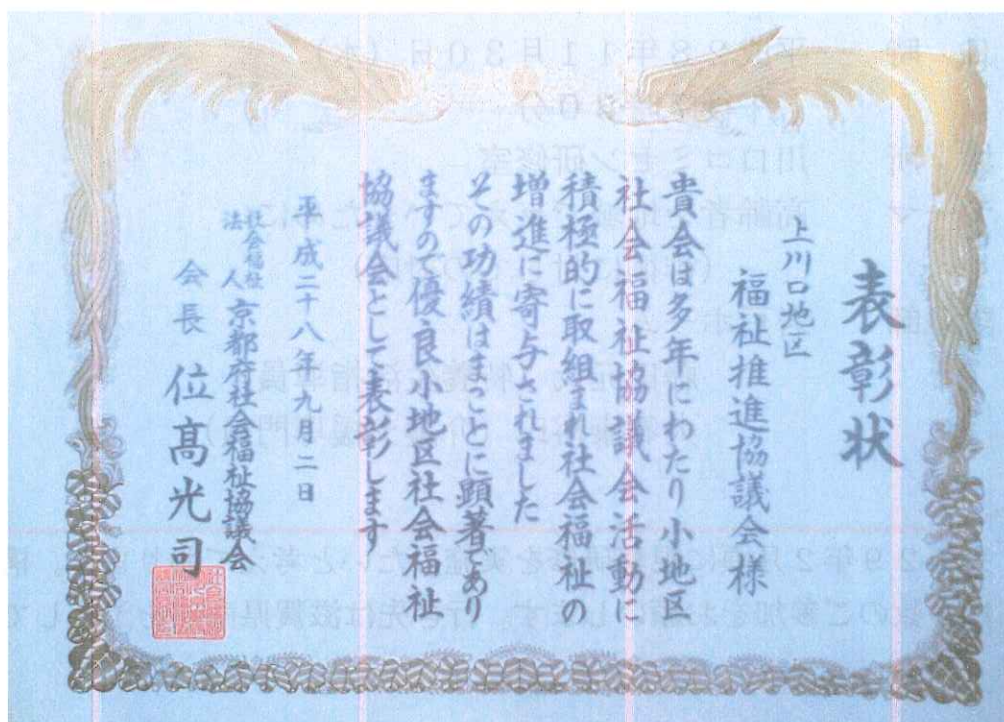 表彰状
上川口地区
福祉推進協議会様
貴会は多年にわたり小地区
社会福祉協議会活動に
積極的に取組まれ社会福祉の
増進に寄与されました
その功績はまことに顕著であり
ますので優良小地区社会福祉
協議会として表彰します
平成二十八年九月二日
社会福祉法人京都府社会福祉協議会
会長 位髙光司